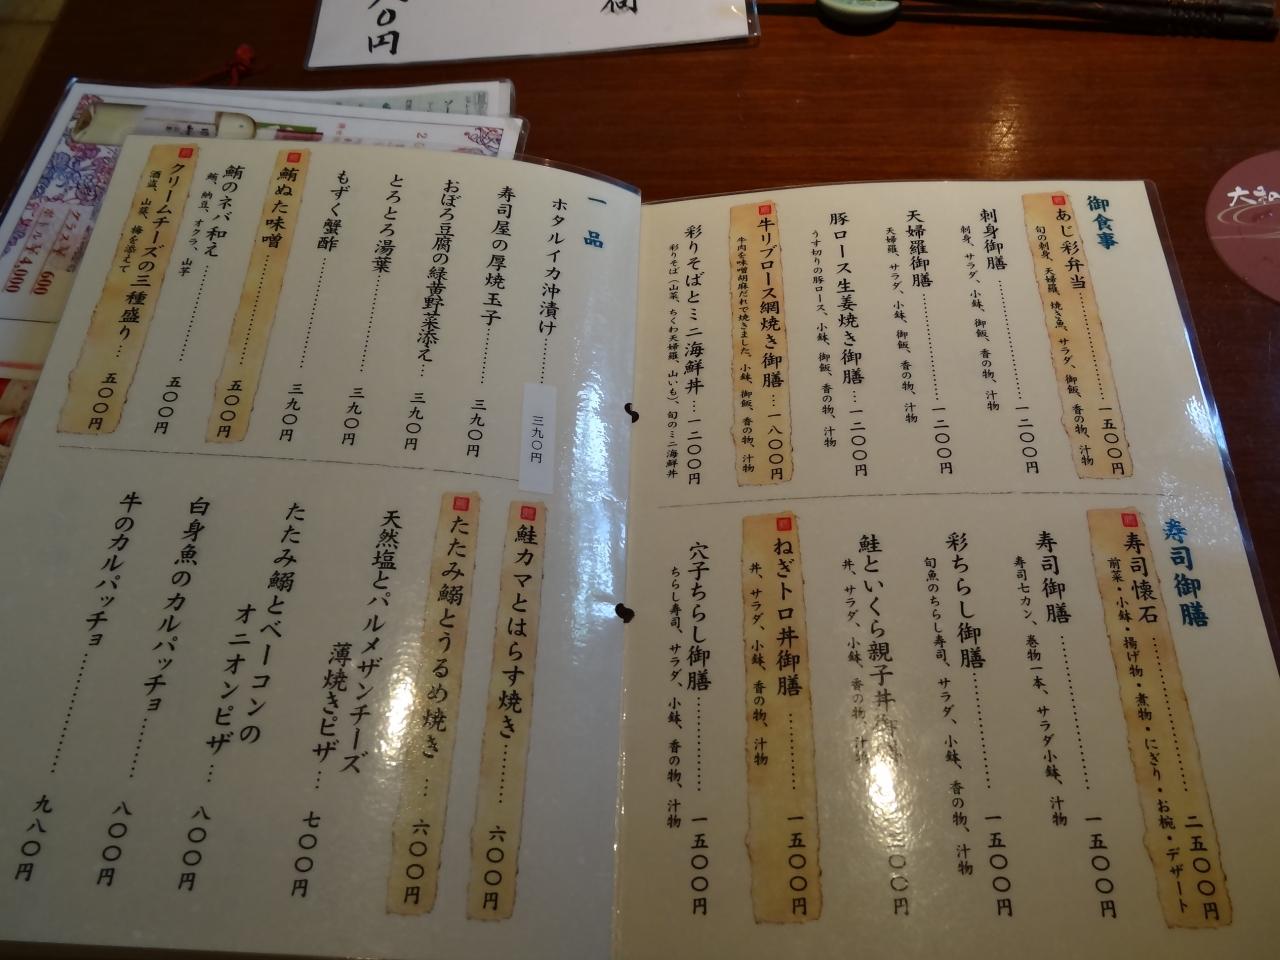 〇円
御食事
あじ彩弁当 一五〇〇円
旬の刺身、天婦羅、焼き魚、サラダ、御飯、香の物、汁物
刺身御膳 一二〇〇円
刺身、サラダ、小鉢、御飯、香の物、汁物
天婦羅御膳 一二〇〇円
天婦羅、サラダ、小鉢、御飯、香の物、汁物
豚ロース生姜焼き御膳 一二〇〇円
うす切りの豚ロース、小鉢、御飯、香の物、汁物
牛リブロース網焼き御膳 一八〇〇円
牛肉を味噌胡麻だれで焼きました、小鉢、御飯、香の物、汁物
彩りそばとミニ海鮮丼 一二〇〇円
彩りそば(山菜、ちくわ天婦羅、山いも)、旬のミニ海鮮丼
寿司御膳
寿司懐石 二五〇〇円
前菜・小鉢・揚げ物・煮物・にぎり・お椀・デザート
寿司御膳 一五〇〇円
寿司七カン、巻物一本、サラダ小鉢、汁物
彩ちらし御膳 一五〇〇円
旬魚のちらし寿司、サラダ、小鉢、香の物、汁物
鮭といくら親子丼御 〇〇円
丼、サラダ、小鉢、香の物、汁物
ねぎトロ丼御膳 一五〇〇円
丼、サラダ、小鉢、香の物、汁物
穴子ちらし御膳 一五〇〇円
ちらし寿司、サラダ、小鉢、香の物、汁物
一品
ホタルイカ沖漬け 三九〇円
寿司屋の厚焼玉子 三九〇円
おぼろ豆腐の緑黄野菜添え 三九〇円
とろとろ湯葉 三九〇円
もずく蟹酢 三九〇円
鮪ぬた味噌 五〇〇円
鮪のネバ和え 五〇〇円
鮪、納豆、オクラ、山芋
クリームチーズの三種盛り 五〇〇円
酒盗、山葵、梅を添えて
鮭カマとはらす焼き 六〇〇円
たたみ鰯とうるめ焼き 六〇〇円
天然塩とパルメザンチーズ
薄焼きピザ 七〇〇円
たたみ鰯とベーコンの
オニオンピザ 八〇〇円
白身魚のカルパッチョ 八〇〇円
牛のカルパッチョ 九八〇円
グラス ¥ 600
ボトル ¥ 4,000